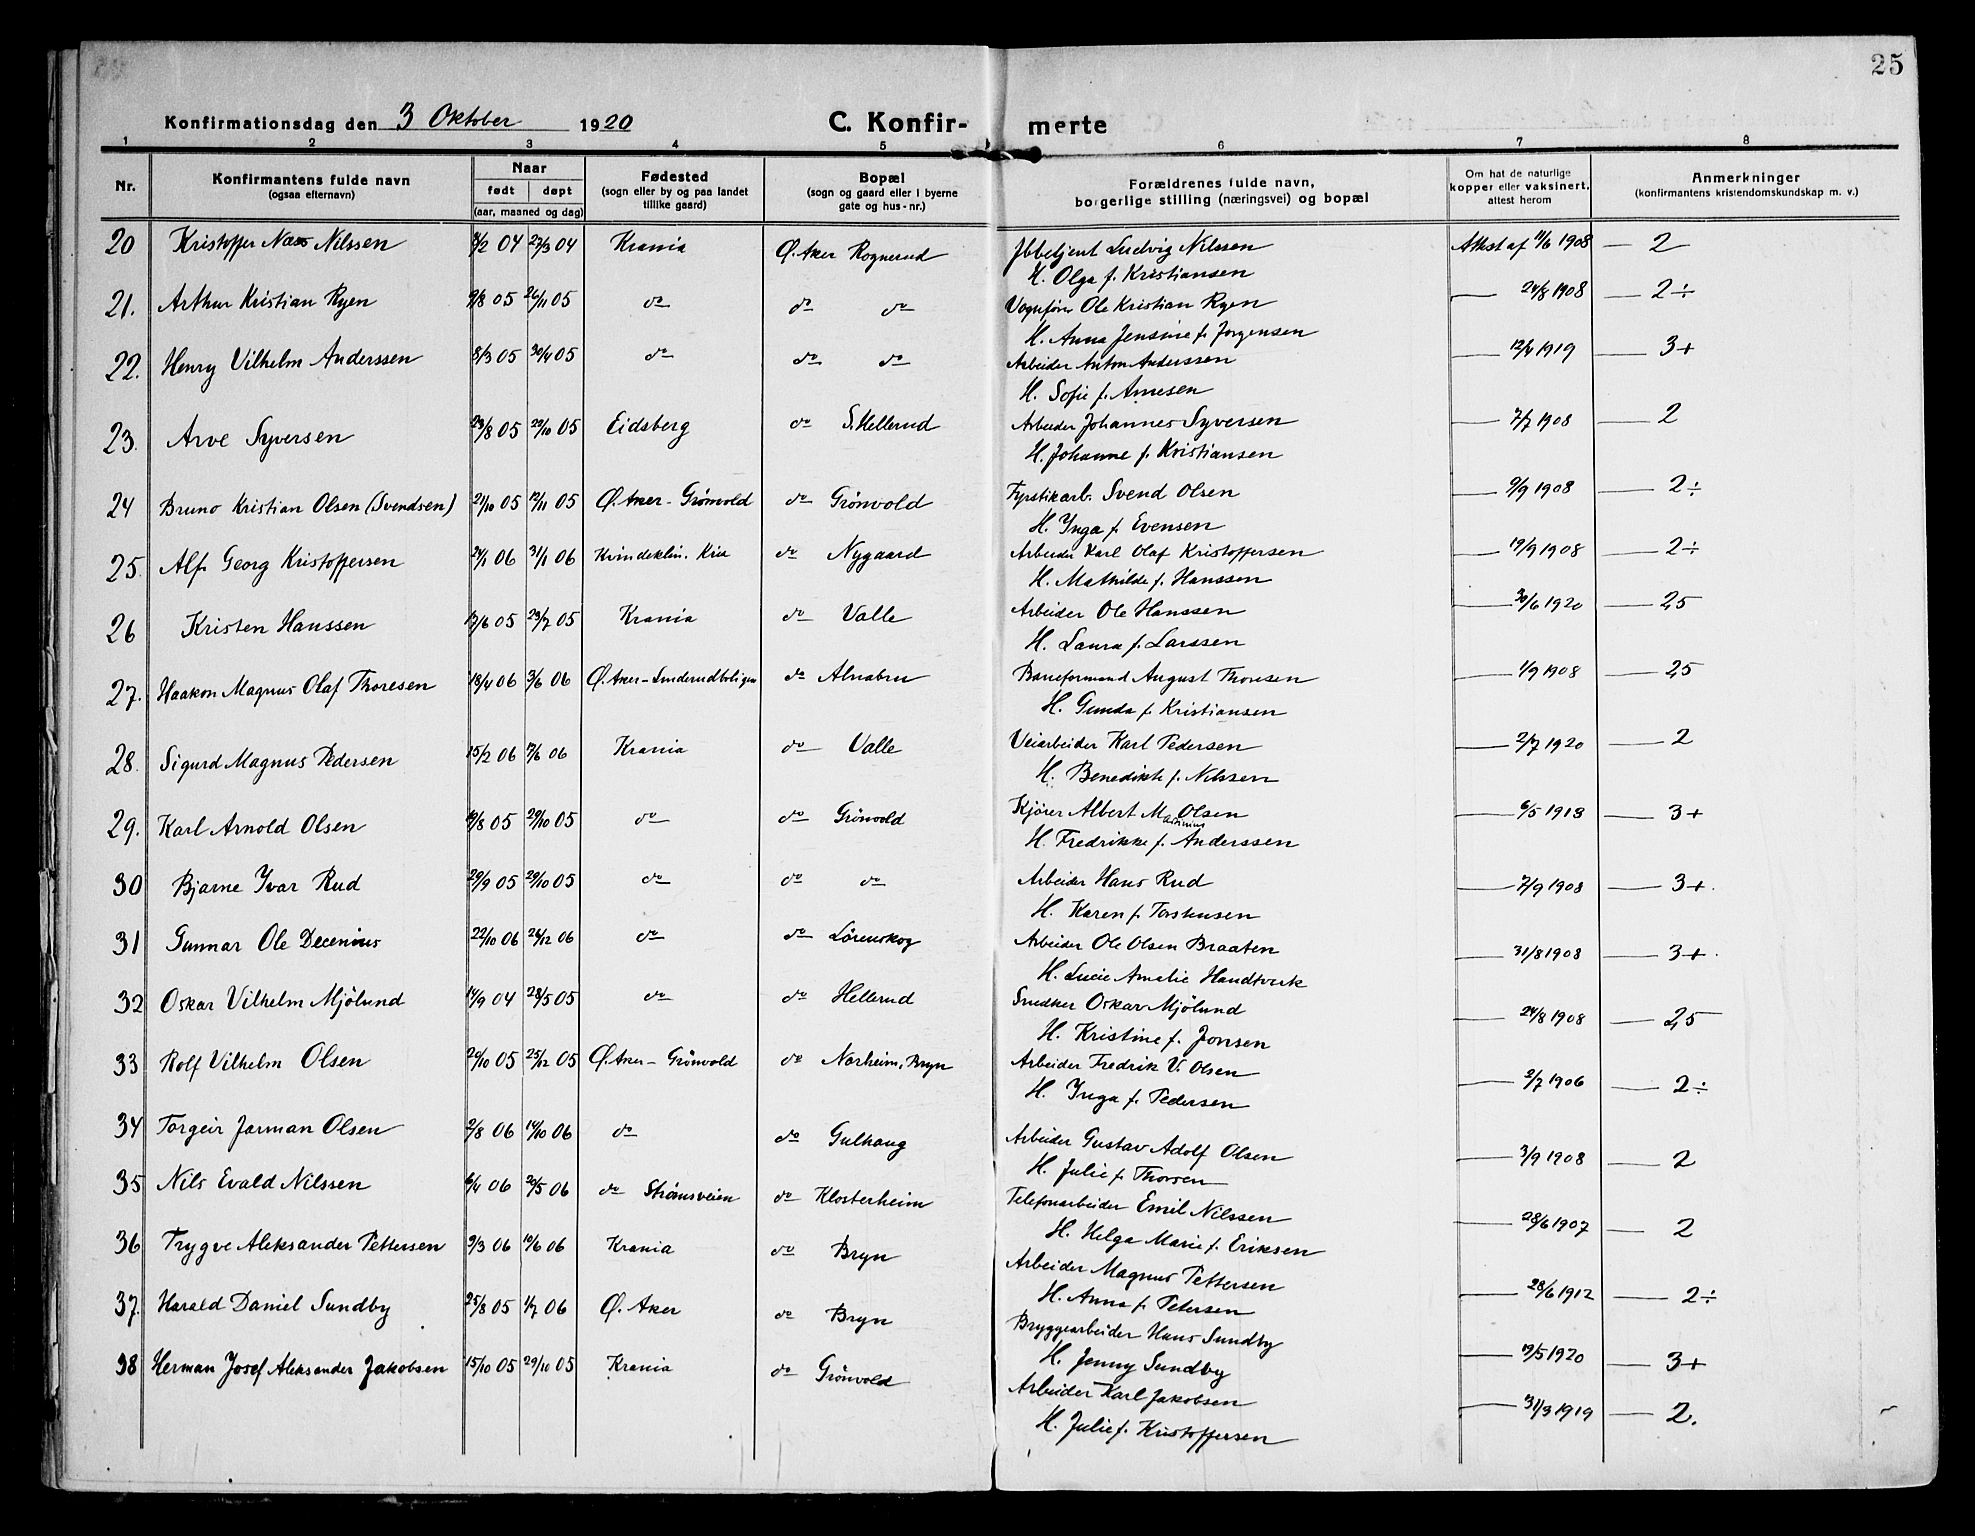 25
Konfirmationsdag den 3 Oktober 1920
C. Konfir- merte
1 2 3 4 5 6 7 8
Nr. Konfirmantens fulde navn (ogsaa efternavn) Naar født døpt (aar, maaned og dag) Fødested (sogn eller by og paa landet tillike gaard) Bopæl (sogn og gaard eller i byerne gate og hus-nr.) Forældrenes fulde navn, borgerlige stilling (næringsvei) og bopæl Om hat de naturlige kopper eller vaksinert, attest herom Anmerkninger (konfirmantens kristendomskundskap m. v.)
20 Kristoffer Næss Nilssen 04 27/3 04 Krania Ø. Aker Rognerud Ludvig Nilssen 11/6 1908 — 2
H. Olga f. Kristiansen
21. Arthur Kristian Ryen 9/8 05 26/11 05 do do do Vognfører Ole Kristian Ryen — 24/8 1908 — 2÷
H. Anna Jensine f. Jørgensen
22. Henry Vilhelm Anderssen 8/3 05 30/4 05 do do do Arbeider Anton Anderssen — 1919 — 3+
H. Sofie f. Arnesen
23. Arve Syversen 23/8 05 29/10 05 Eidsberg do S. Hellerud Arbeider Johannes Syversen — 7/7 1908 — 2
H. Johanne f. Kristiansen
24 Bruno Kristian Olsen (Svendsen) 21/10 05 12/11 05 Ø. Aker - Grønvold do Grønvold Fyrstikarb. Svend Olsen — 9/9 1908 — 2÷
H. Inga f. Evensen
25. Alf Georg Kristoffersen 24/1 06 31/1 06 Kvindeklin. Kria do Nygaard Arbeider Karl Olaf Kristoffersen — 19/9 1908 — 2÷
H. Mathilde f. Hanssen
26 Kristen Hanssen 13/6 05 23/7 05 Krania do Valle Arbeider Ole Hanssen — 30/6 1920 — 2,5
H. Laura f. Larssen
27. Haakon Magnus Olaf Thoresen 18/4 06 3/6 06 Ø. Aker - Linderudboligen do Alnabru Baneformand August Thoresen — 1/9 1908 — 2,5
H. Gunda f. Kristiansen
28. Sigurd Magnus Pedersen 15/2 06 17/6 06 Krania do Valle Veiarbeider Karl Pedersen — 2/7 1920 — 2
H. Benedikte f. Nilssen
29. Karl Arnold Olsen 19/8 05 29/10 05 do do Grønvold Kjører Albert Martinius Olsen — 6/5 1913 — 3+
H. Fredrikke f. Anderssen
30 Bjarne Ivar Rud 29/9 05 29/10 05 do do do Arbeider Hans Rud — 7/9 1908 — 3+.
H. Karen f. Torstensen
31 Gunnar Ole Decenius 22/10 06 26/12 06 do do Lørenskog Arbeider Ole Olsen Braaten — 31/8 1908 — 3+.
H. Lucie Amalie Handtverk
32 Oskar Vilhelm Mjølund 14/9 04 28/5 05 do do Hellerud Snedker Oskar Mjølund — 24/8 1908 — 2,5
H. Kristine f. Jonsen
33 Rolf Vilhelm Olsen 29/10 05 25/12 05 Ø. Aker - Grønvold do Norheim, Bryn Arbeider Fredrik V. Olsen — 2/7 1906 — 2÷
H. Inga f. Pedersen
34 Torgeir Jarman Olsen 2/8 06 14/10 06 do do Gulhaug Arbeider Gustav Adolf Olsen — 3/9 1908 — 2
H. Julie f. Thorsen
35 Nils Evald Nilssen 6/4 06 20/5 06 do Strømsveien do Klosterheim Telefonarbeider Emil Nilssen — 28/6 1907 — 2
H. Helga Marie f. Eriksen
36 Trygve Aleksander Pettersen 9/3 06 10/6 06 Krania do Bryn Arbeider Magnus Pettersen — 28/6 1912 — 2÷
H. Anna f. Petersen
37. Harald Daniel Sundby 25/8 05 1/7 06 Ø. Aker do Bryn Bryggearbeider Hans Sundby — 19/5 1920 — 3+
H. Jenny Sundby
38 Herman Josef Aleksander Jakobsen 15/10 05 29/10 05 Krania do Grønvold Arbeider Karl Jakobsen — 31/3 1919 — 2.
H. Julie f. Kristoffersen